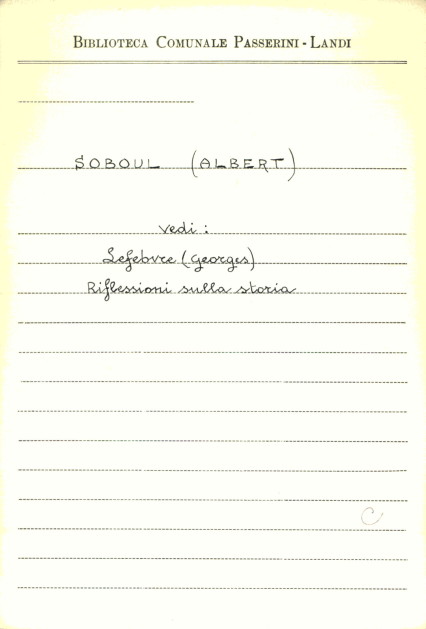 BIBLIOTECA COMUNALE PASSERINI - LANDI
SOBOUL (ALBERT)
vedi :
Lefebvre (Georges)
Riflessioni sulla storia
C